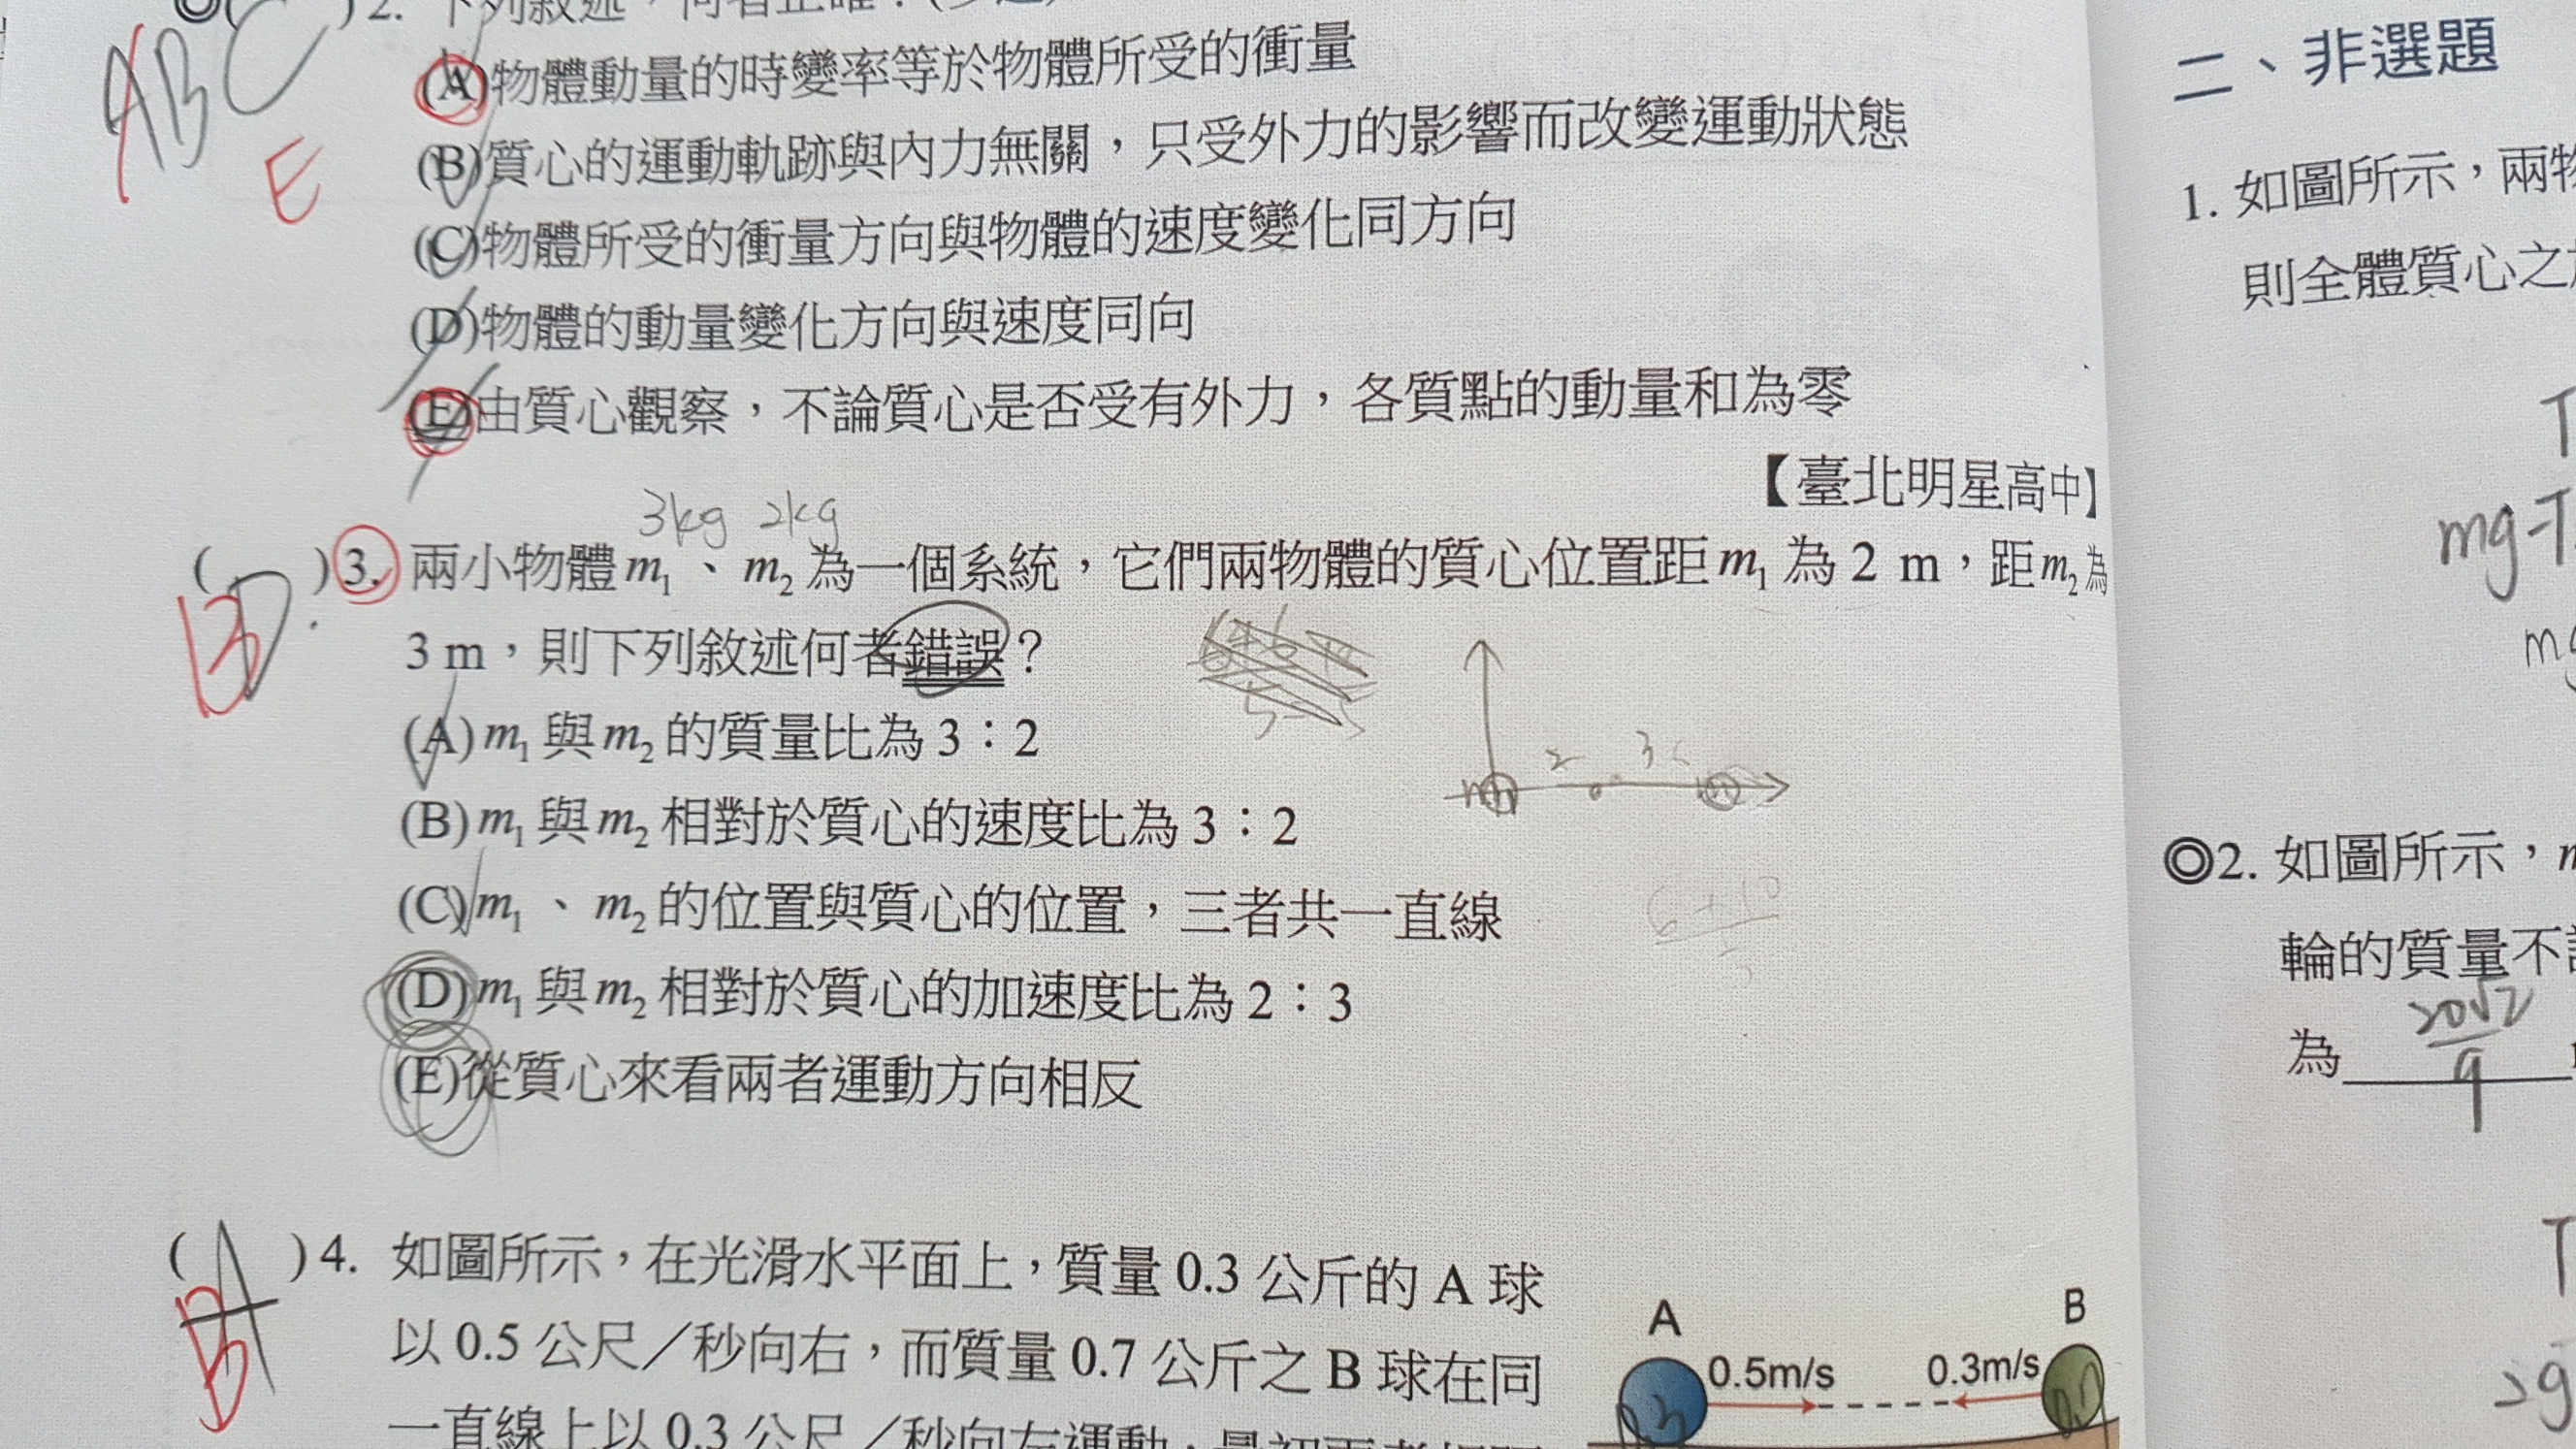 2. 下列敘述,何者正確?
ABC
E
(A)物體動量的時變率等於物體所受的衝量
(B)質心的運動軌跡與內力無關,只受外力的影響而改變運動狀態
(C)物體所受的衝量方向與物體的速度變化同方向
(D)物體的動量變化方向與速度同向
(E)由質心觀察,不論質心是否受有外力,各質點的動量和為零
【臺北明星高中】
3kg 2kg
( )3. 兩小物體m₁、m₂為一個系統,它們兩物體的質心位置距m₁為2 m,距m₂為
BD
3 m,則下列敘述何者錯誤?
(A) m₁與m₂的質量比為3:2
2 3
(B) m₁與m₂相對於質心的速度比為3:2
(C) m₁、m₂的位置與質心的位置,三者共一直線
6+10
(D) m₁與m₂相對於質心的加速度比為2:3
(E)從質心來看兩者運動方向相反
( )4. 如圖所示,在光滑水平面上,質量0.3公斤的A球
A
B
以0.5公尺/秒向右,而質量0.7公斤之B球在同
一直線上以0.3公尺/秒向左運動,最初兩者相距
A B
0.5m/s 0.3m/s
二、非選題
1. 如圖所示,兩物
則全體質心之
T
mg-T
◎2. 如圖所示,
輪的質量不
為 20√2
9
T
2g